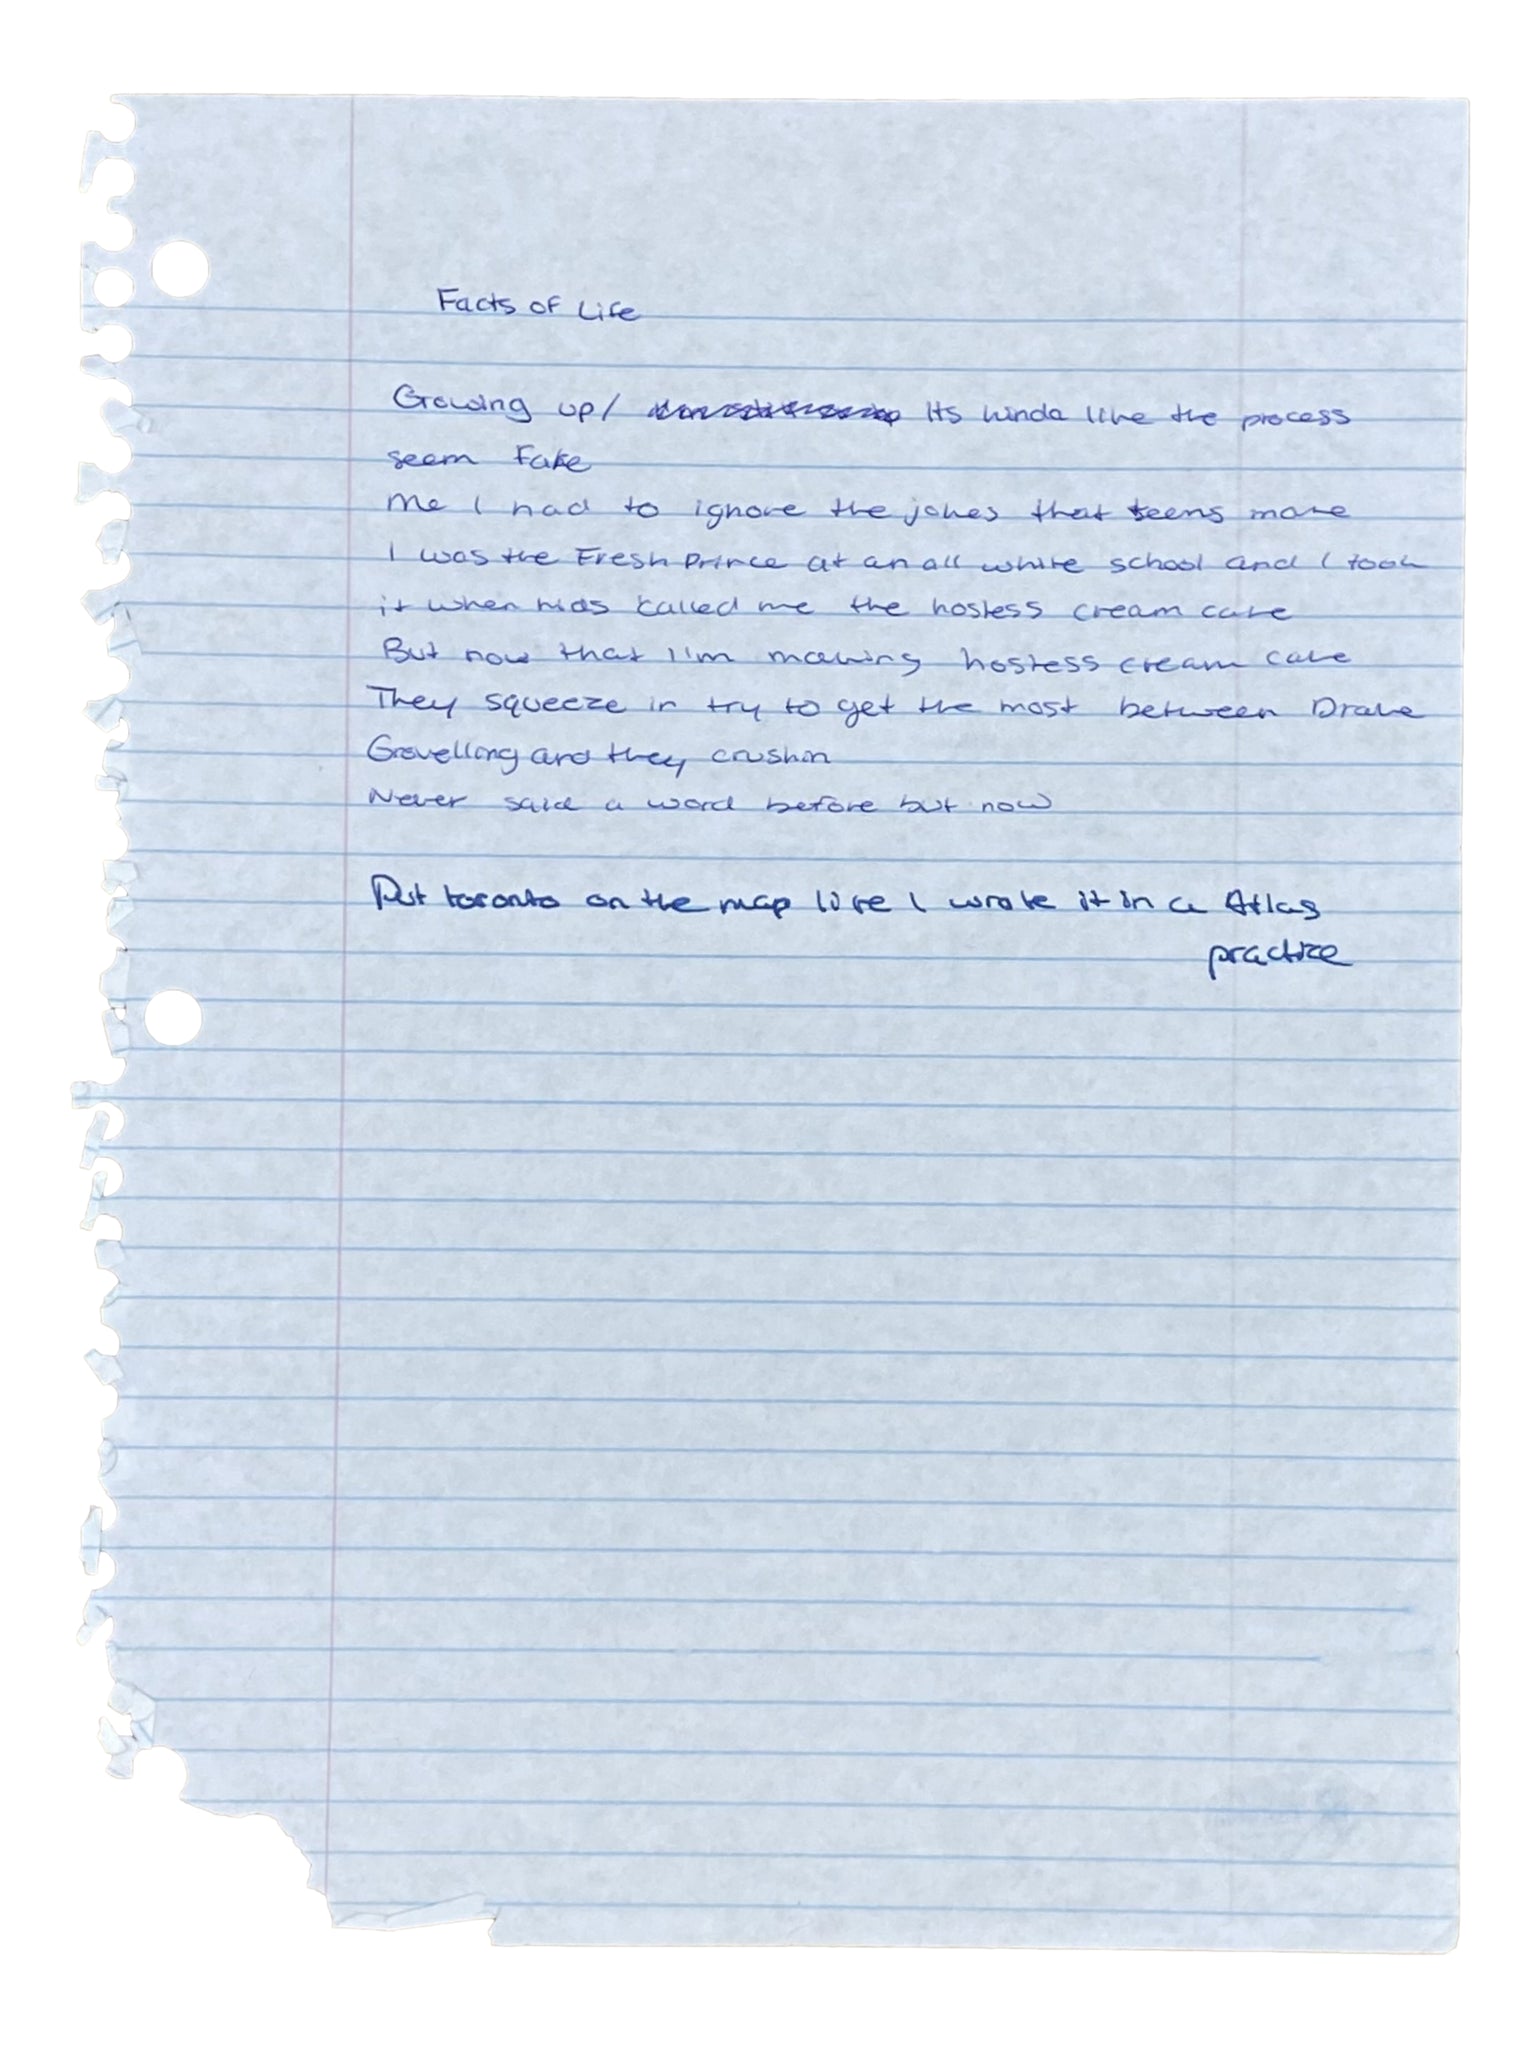 Facts of Life
Growing up/ Its kinda like the process
seem Fake
Me I had to ignore the jokes that teens make
I was the Fresh Prince at an all white school and I took
it when kids called me the hostess cream cake
But now that I'm making hostess cream cake
They squeeze in try to get the most between Drake
Grovelling and they crushin
Never said a word before but now
Put toronto on the map like I wrote it in a Atlas
practice